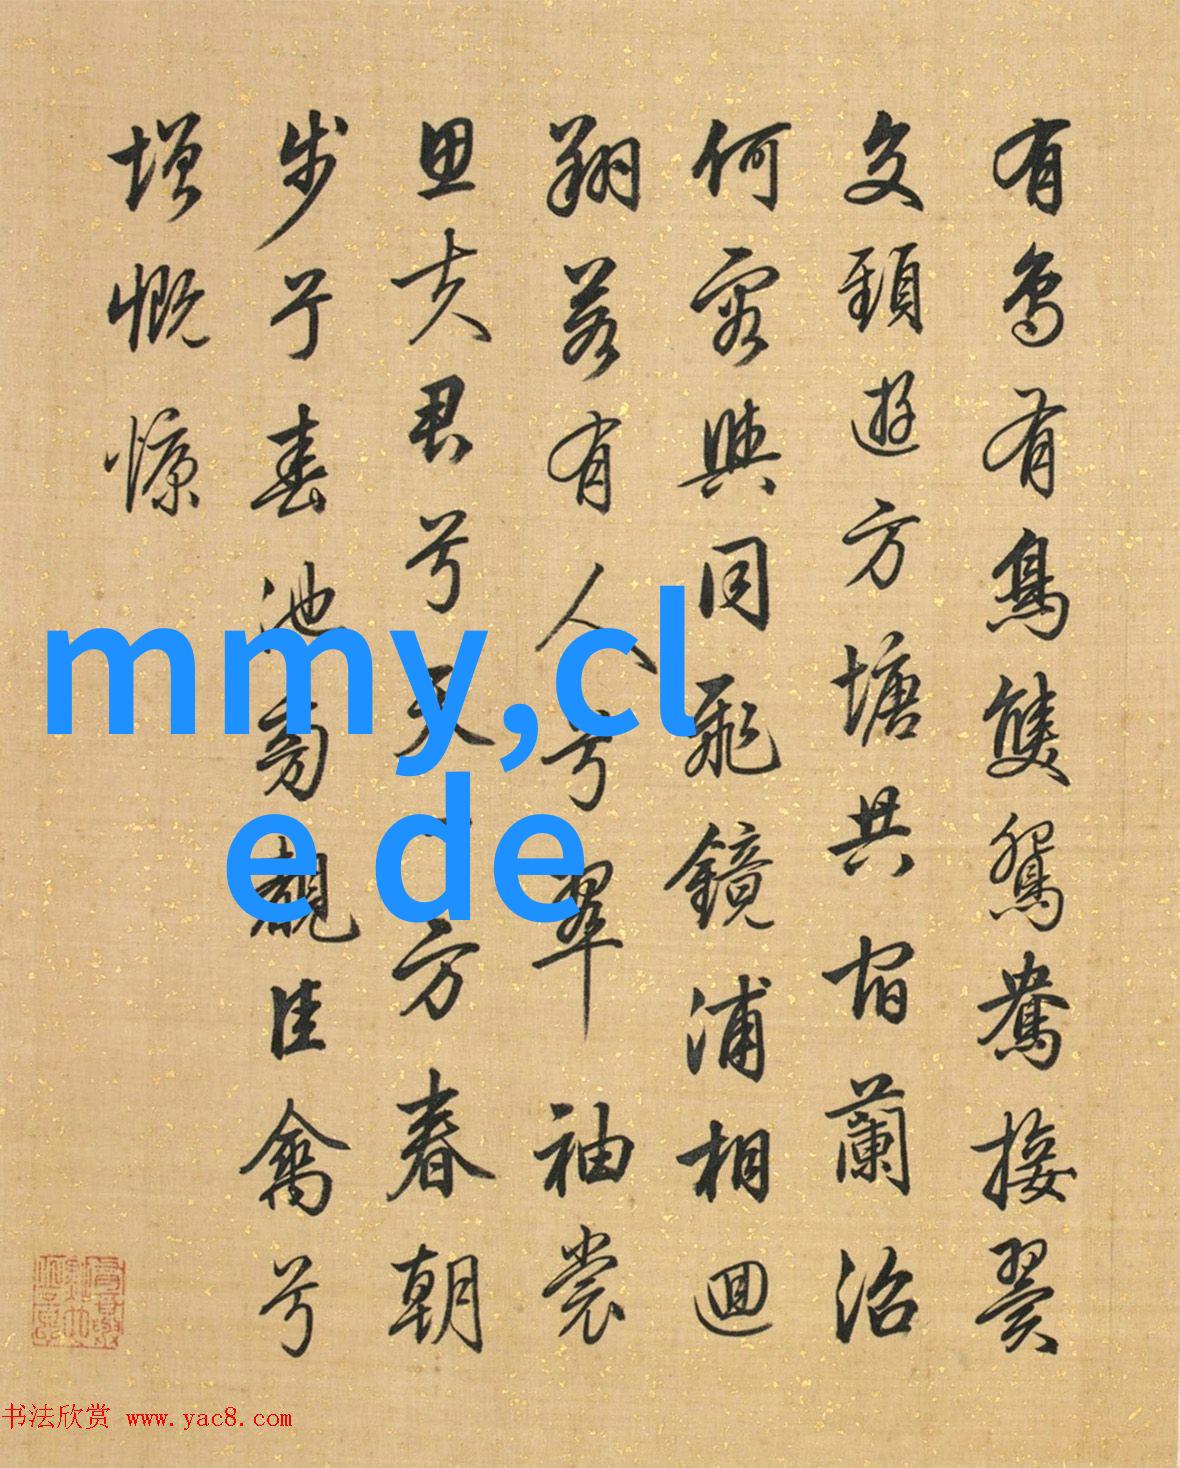 有鳥有鳥雙鴛鴦接翼
交頸遊方塘共宿蘭沼
何容與同飛鏡浦相迴
翔若有人兮翠袖裳
思夫君兮天一方春朝
步于春池旁覩佳禽兮
增慨慷
mmy,cl
e de
书法欣赏 www.yac8.com